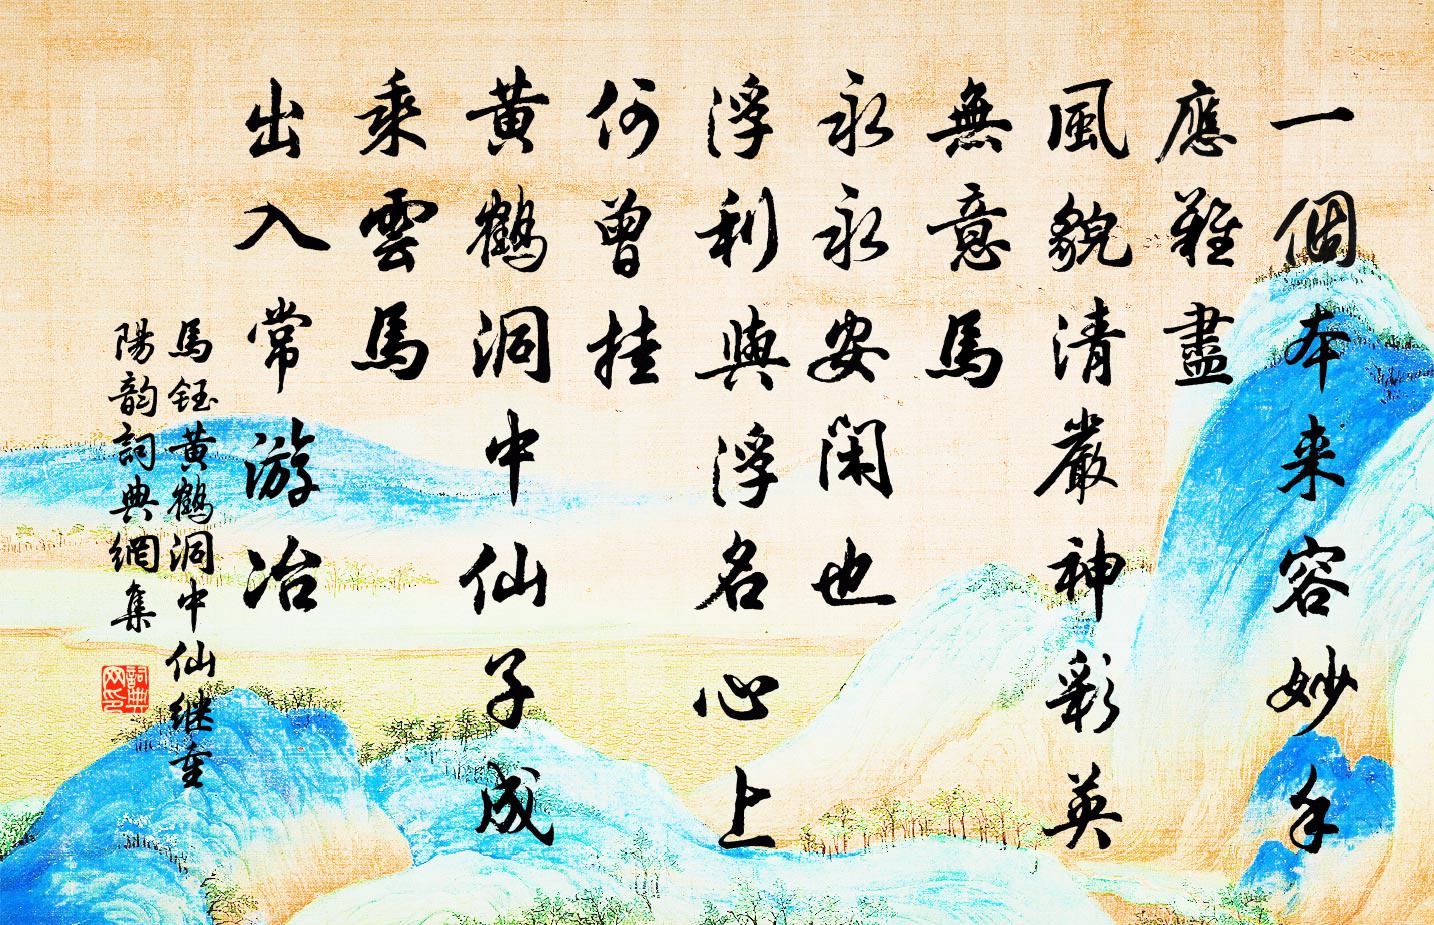 一個本来容妙手
應難盡
風貌清嚴神彩英
無意馬
永永安閑也
浮利與浮名心上
何曾挂
黄鶴洞中仙子成
乘雲馬
出入常游冶
馬鈺黄鶴洞中仙继重
陽韵詞典網集
詞典
网印